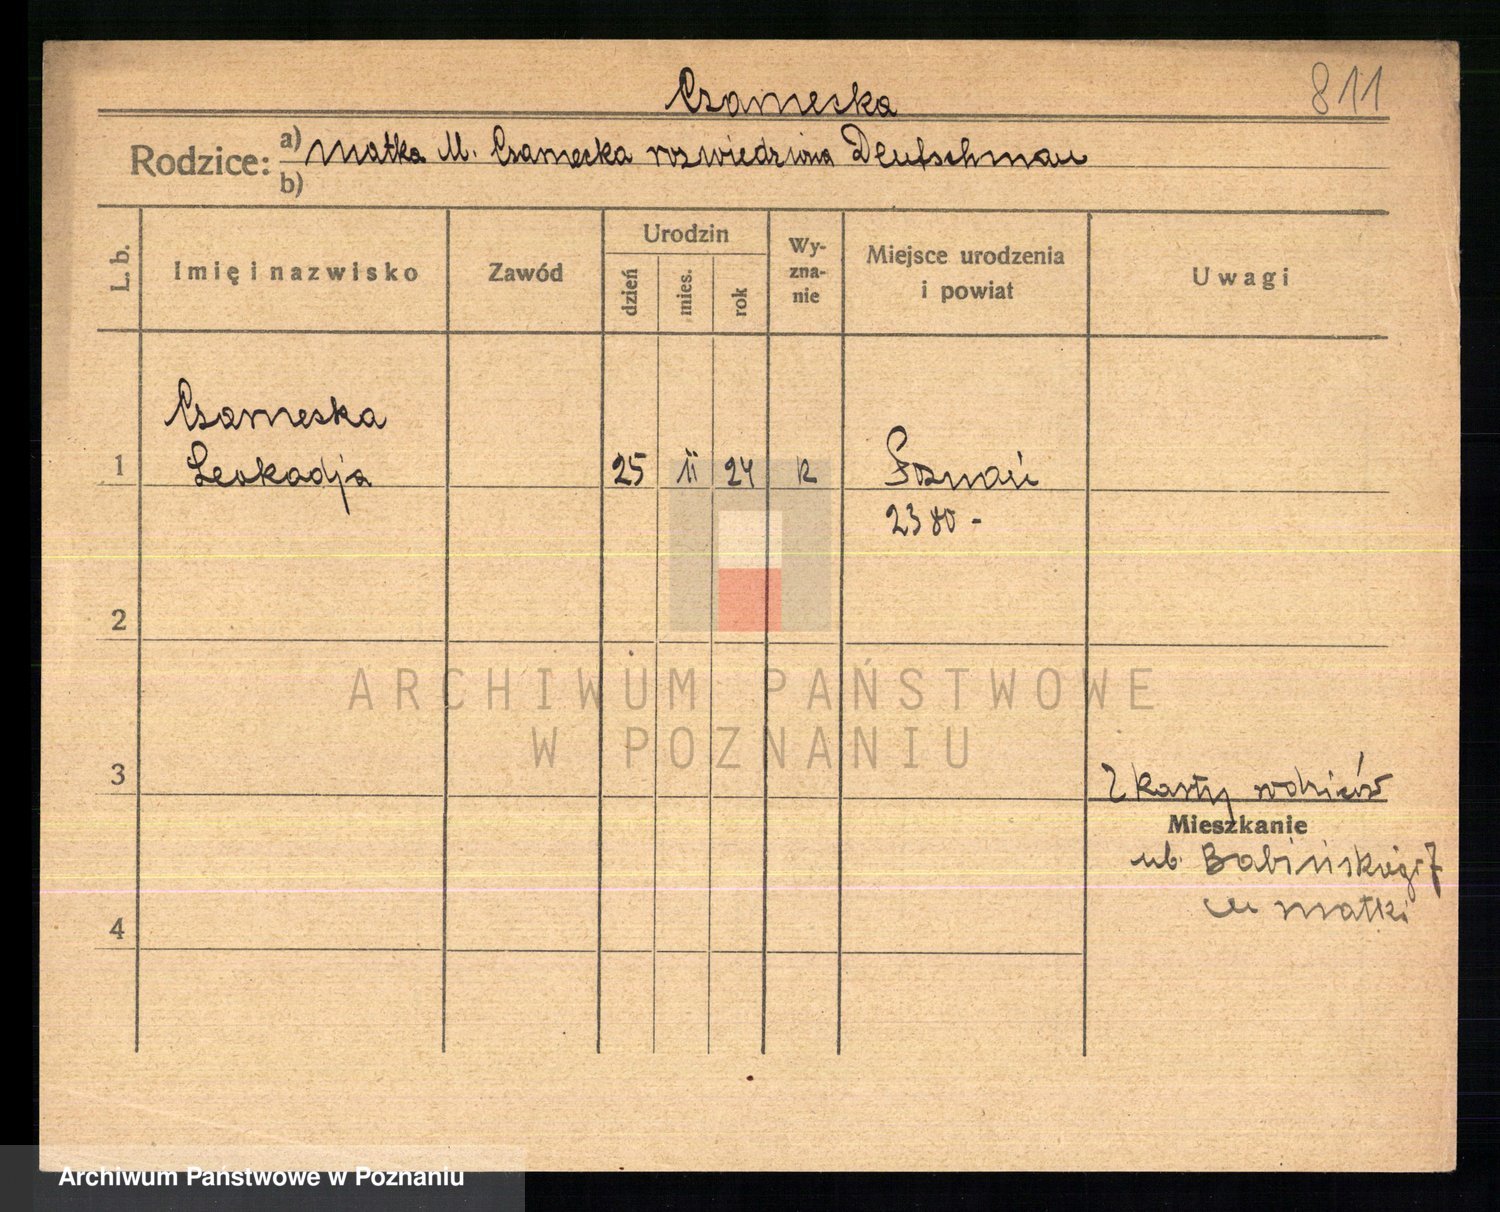 Czarnecka
811
Rodzice: a) matka M. Czarnecka rozwiedziona Deutschman
b)
L. b.
Imię i nazwisko
Zawód
Urodzin
dzień
mies.
rok
Wy-
zna-
nie
Miejsce urodzenia
i powiat
Uwagi
Czarnecka
1 Leokadja 25 II 24 k Poznań
2380 -
2
ARCHIWUM PAŃSTWOWE
W POZNANIU
3
Z karty rodziców
Mieszkanie
ub. Babińskiego 7
u matki
4
Archiwum Państwowe w Poznaniu